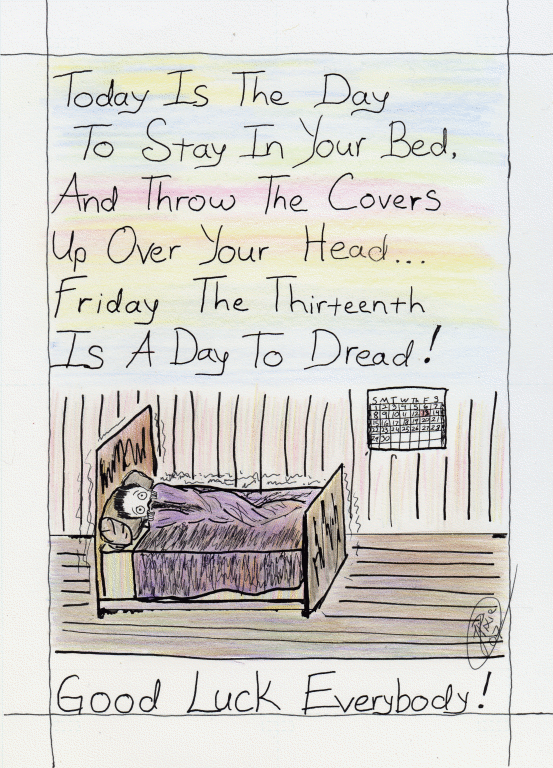 Today Is The Day
To Stay In Your Bed,
And Throw The Covers
Up Over Your Head...
Friday The Thirteenth
Is A Day To Dread!
S M T W Th F S
Good Luck Everybody!